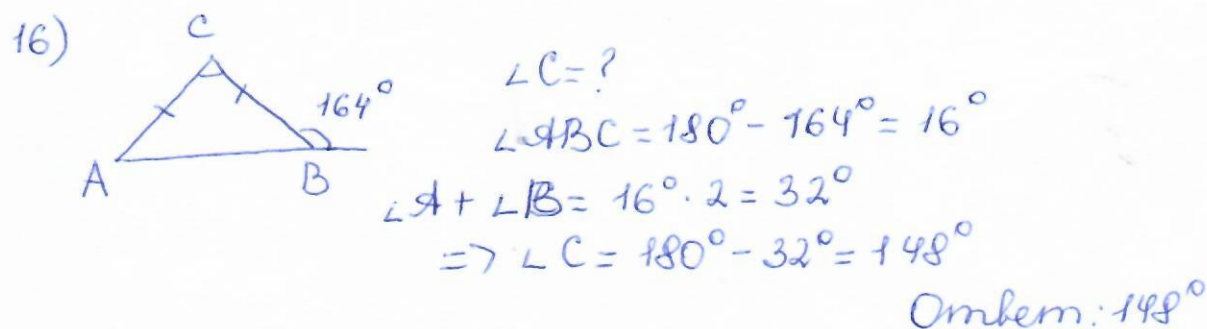 16)
C
164°
A
B
∠C = ?
∠ABC = 180° - 164° = 16°
∠A + ∠B = 16° · 2 = 32°
=> ∠C = 180° - 32° = 148°
Ответ: 148°